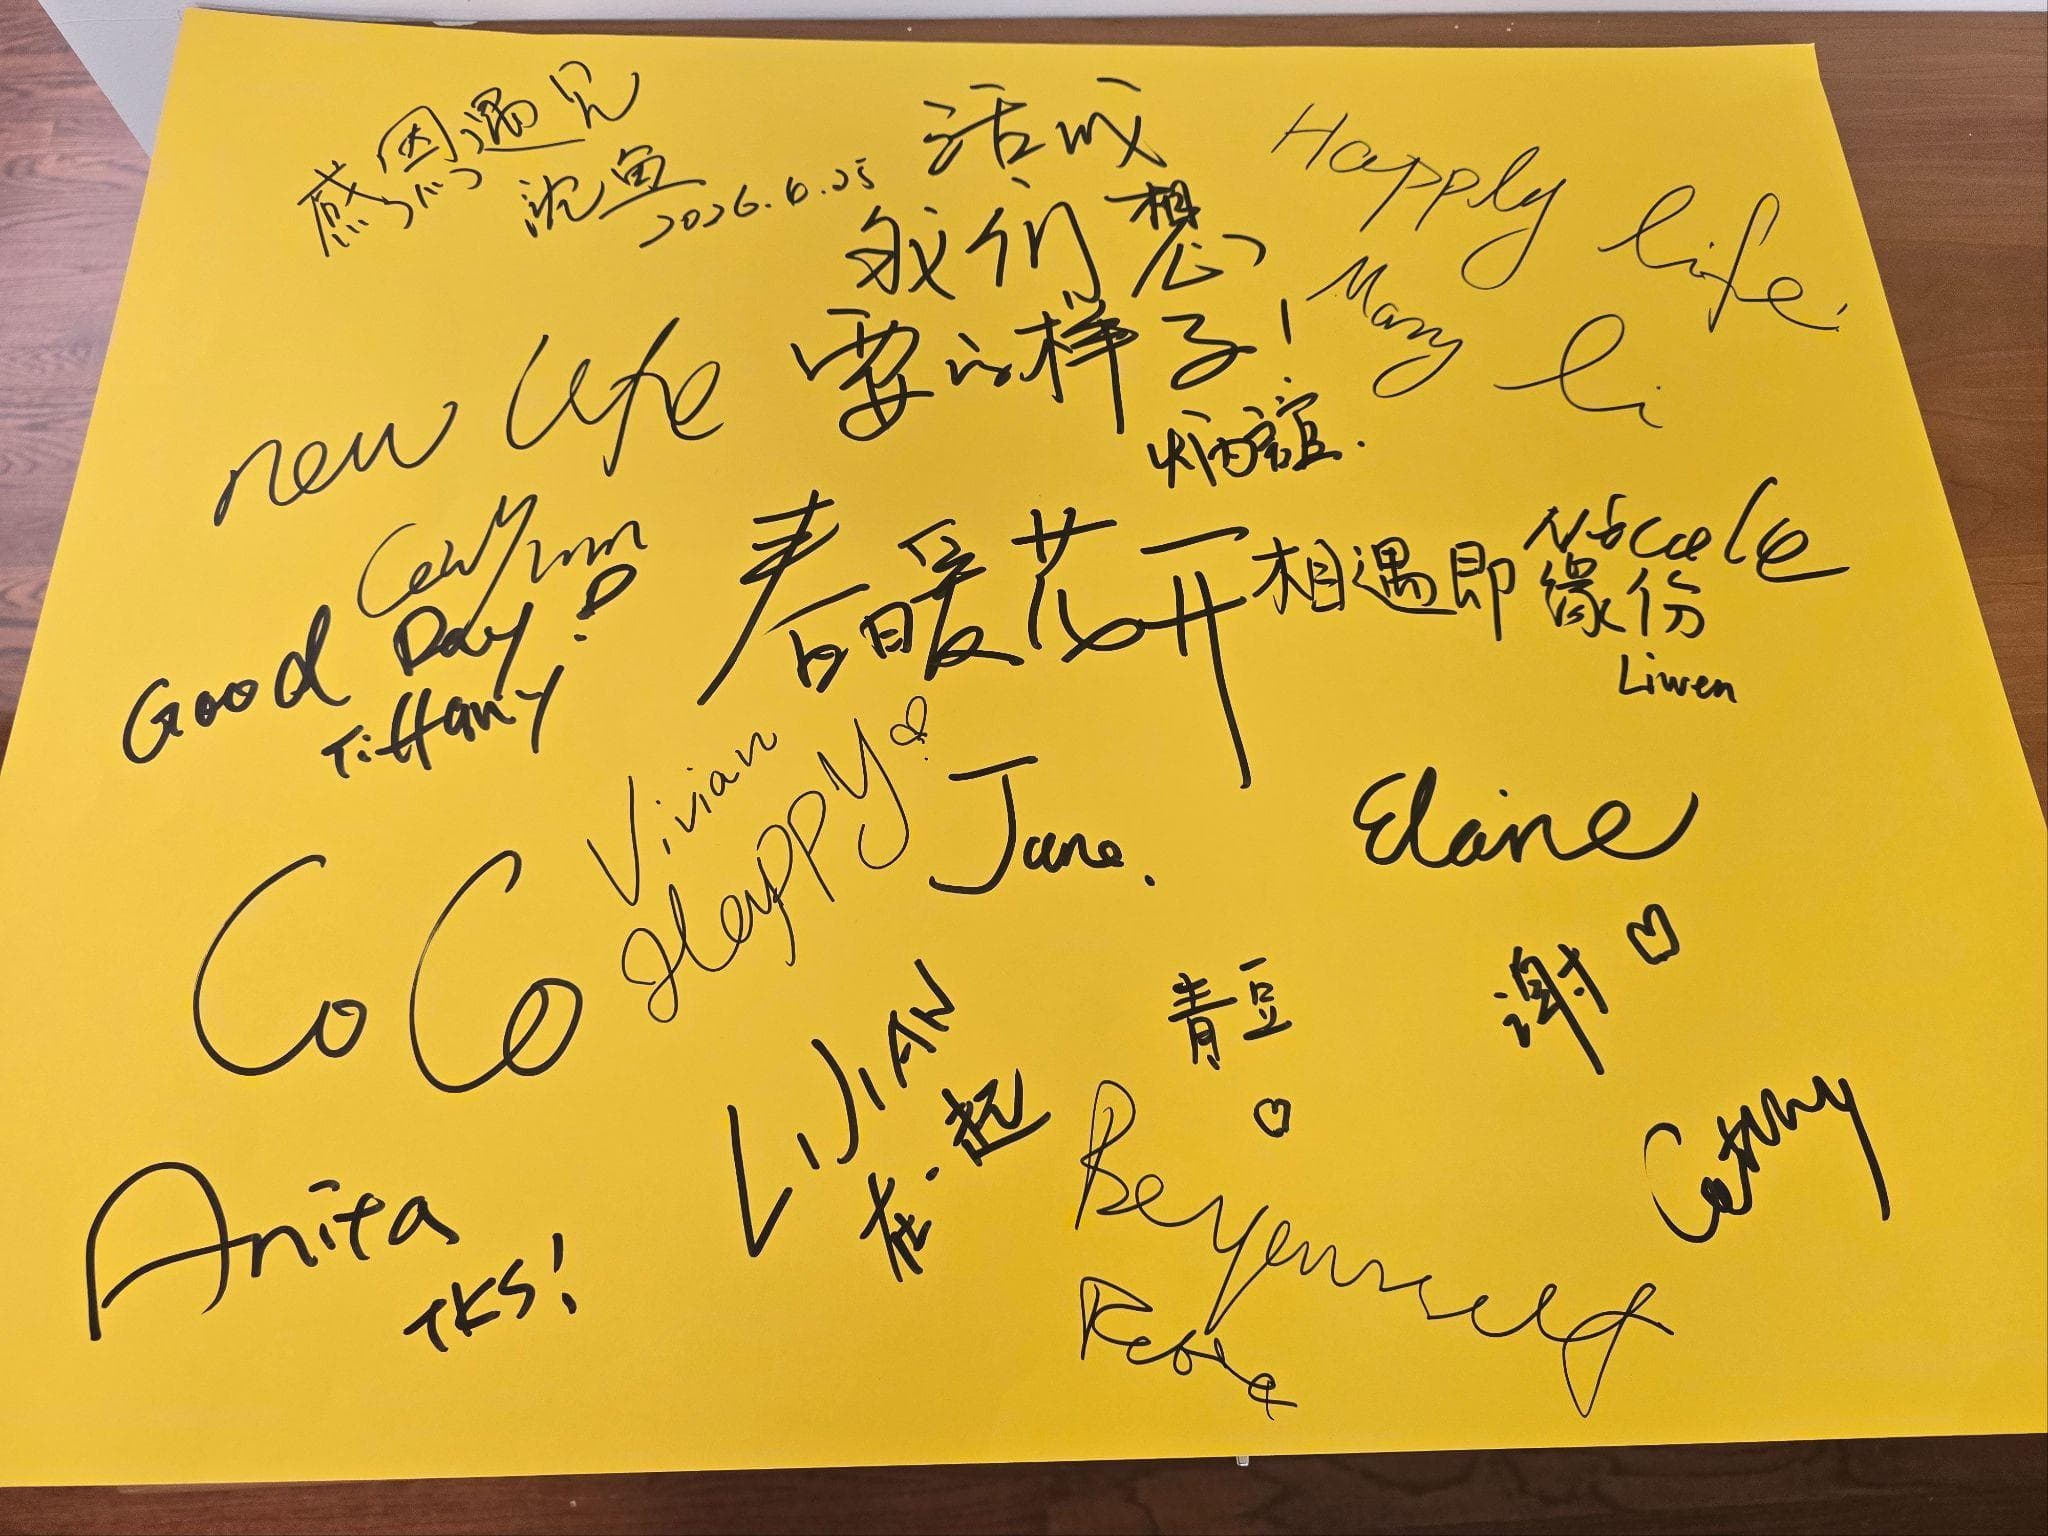 感恩遇见
沈鱼
2026.6.25
活成
我们想
要的样子！
炳谊.
Happly life.
Mary li
new life
Good Day!
Tiffany
春暖花开
Nicole
相遇即缘份
Liwen
Vivian
Happy
Jane.
Elaine
CoCo
LIJIAN
在一起
青豆
谢
Cathy
Anita
TKS!
Be yourself